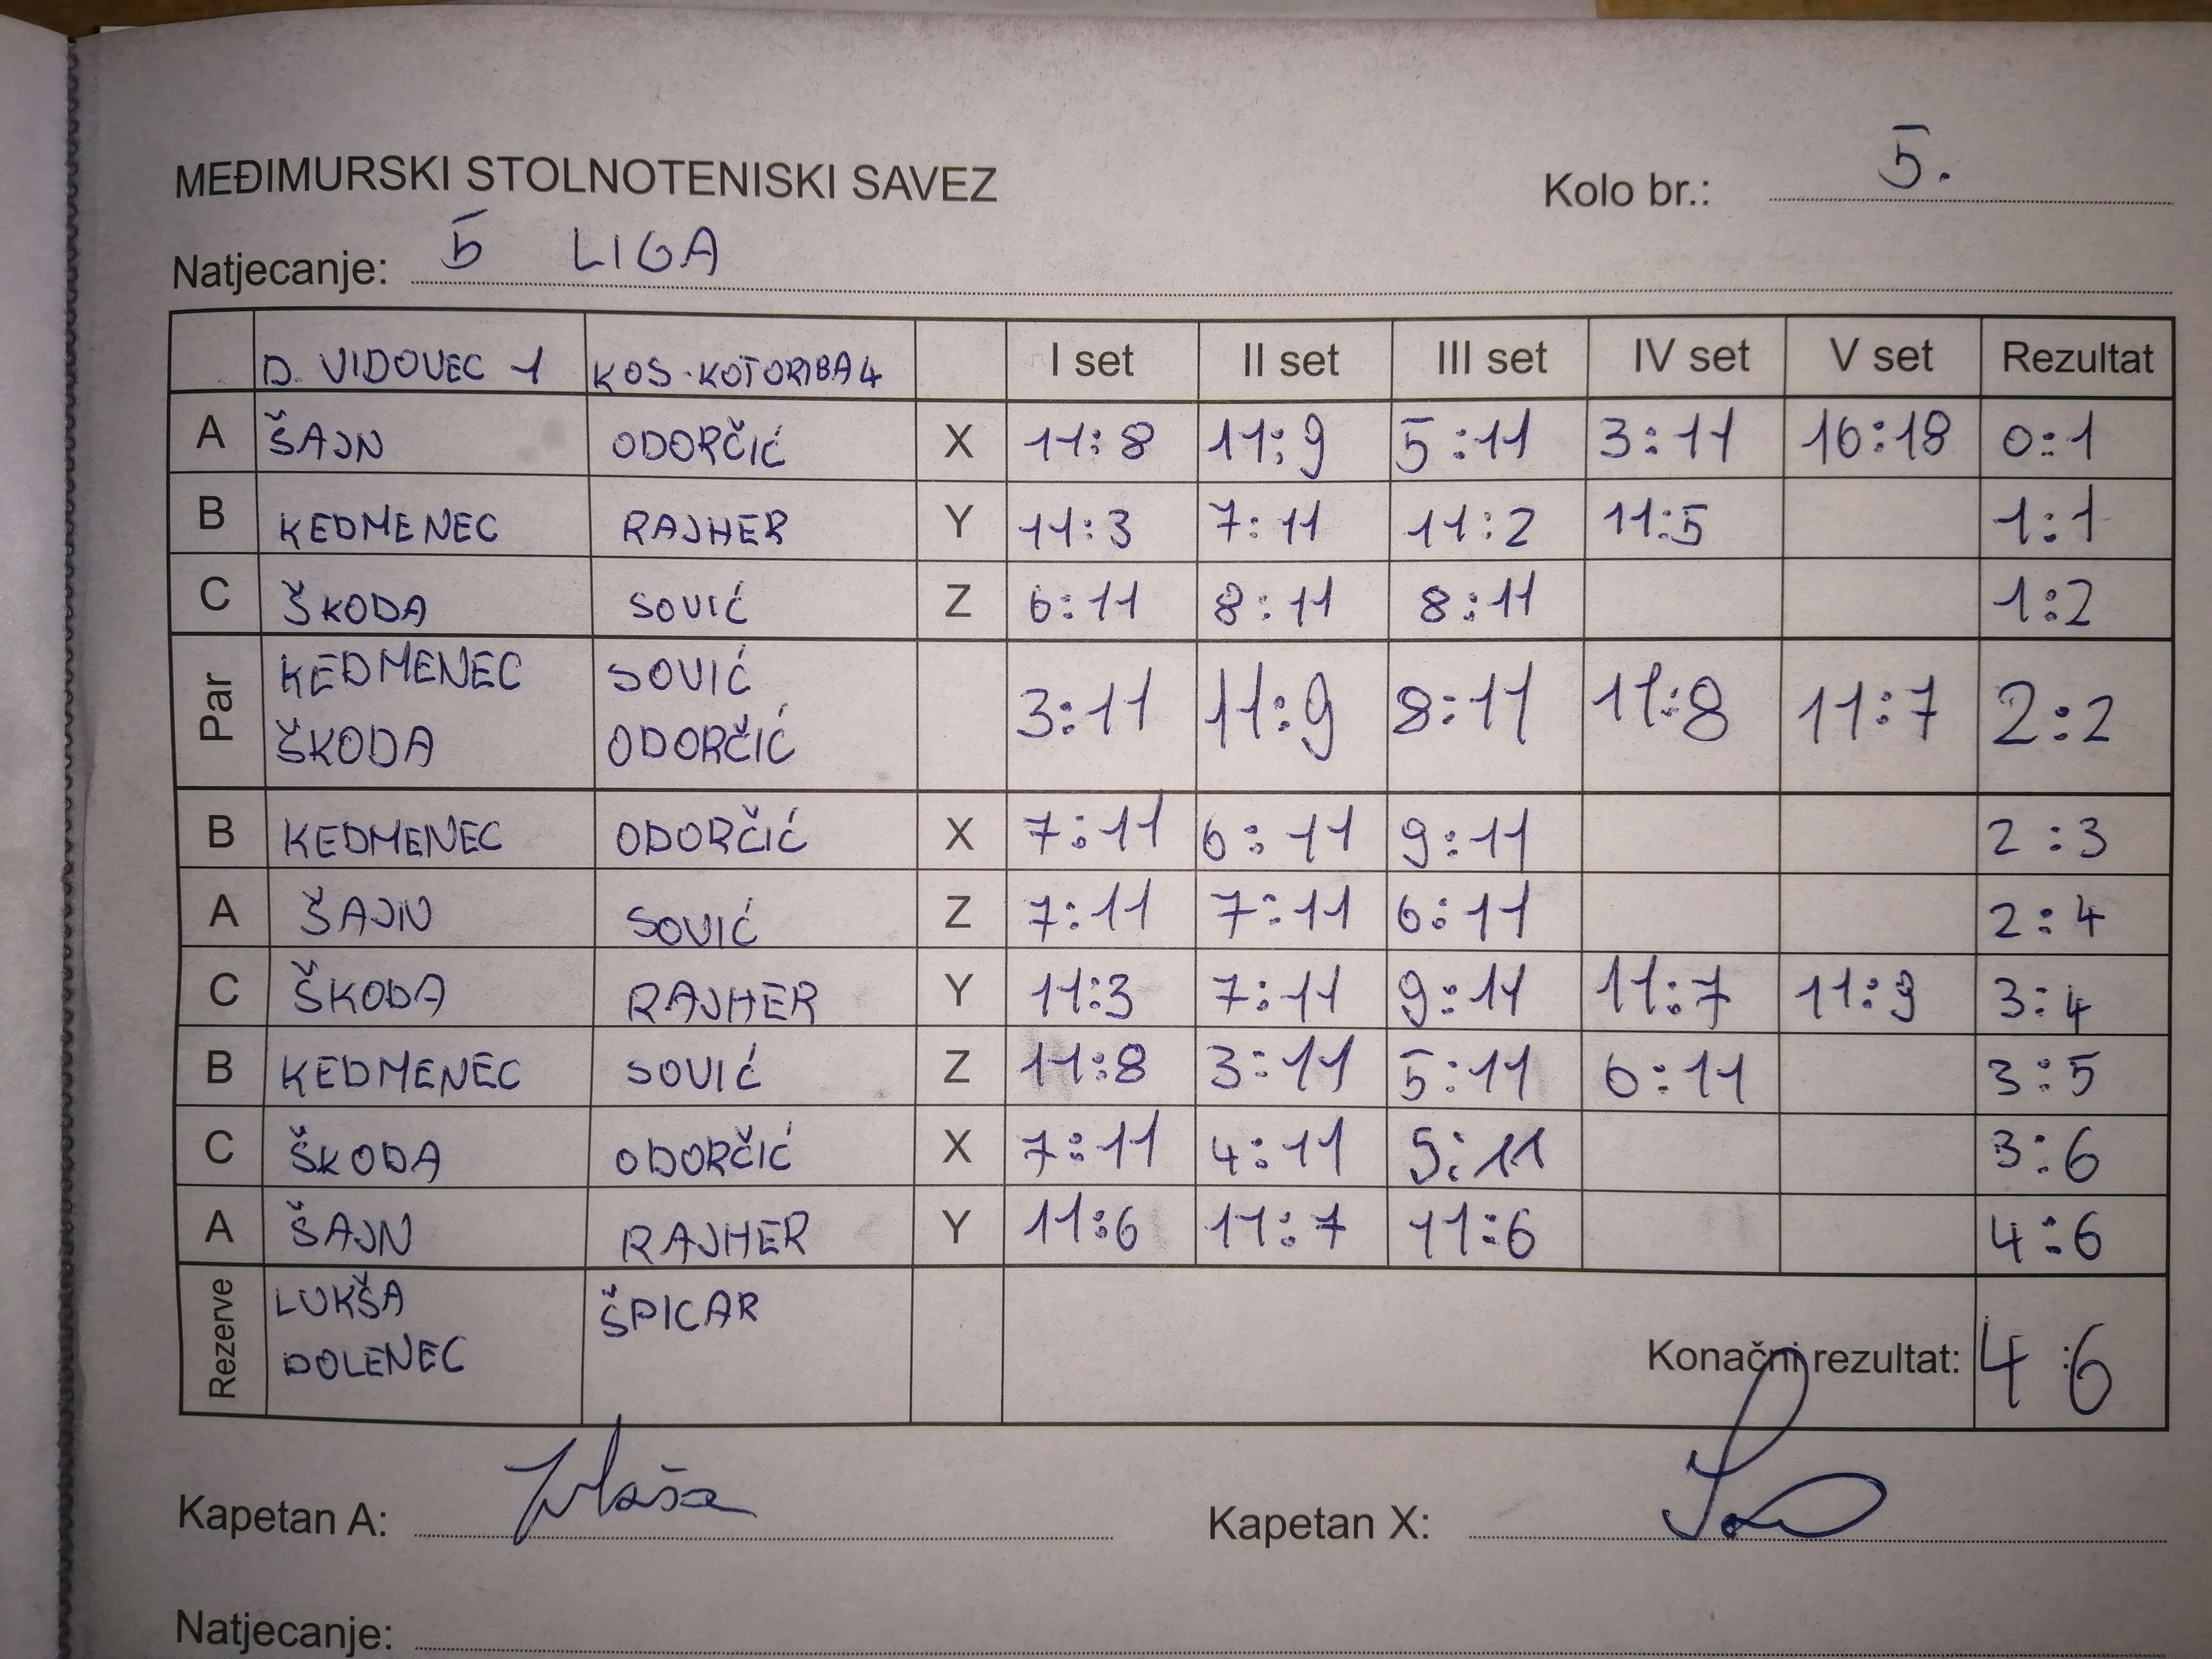 MEĐIMURSKI STOLNOTENISKI SAVEZ Kolo br.: 5.
Natjecanje: 5 LIGA
D. VIDOVEC 1 KOS-KOTORIBA 4 I set II set III set IV set V set Rezultat
A ŠAJN ODORČIĆ X 11:8 11:9 5:11 3:11 16:18 0:1
B KEDMENEC RAJHER Y 11:3 7:11 11:2 11:5 1:1
C ŠKODA SOVIĆ Z 6:11 8:11 8:11 1:2
Par KEDMENEC SOVIĆ 3:11 11:9 8:11 11:8 11:7 2:2
ŠKODA ODORČIĆ
B KEDMENEC ODORČIĆ X 7:11 6:11 9:11 2:3
A ŠAJN SOVIĆ Z 7:11 7:11 6:11 2:4
C ŠKODA RAJHER Y 11:3 7:11 9:11 11:7 11:9 3:4
B KEDMENEC SOVIĆ Z 11:8 3:11 5:11 6:11 3:5
C ŠKODA ODORČIĆ X 7:11 4:11 9:11 3:6
A ŠAJN RAJHER Y 11:6 11:7 11:6 4:6
Rezerve LUKŠA ŠPICAR
DOLENEC
Konačni rezultat: 4:6
Kapetan A: Kapetan X:
Natjecanje: